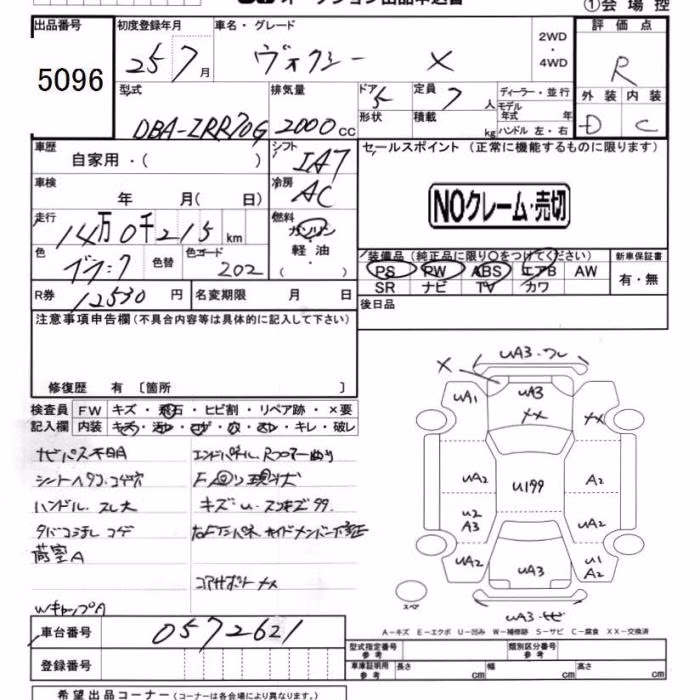 ①会場控
出品番号
5096
初度登録年月
25 7月
車名・グレード
ヴォクシー X
2WD・4WD
評価点
R
外装 内装
D C
型式
DBA-ZRR70G
排気量
2000cc
ドア 5
形状
定員 7人
積載 kg
ディーラー・並行
モデル年式 年
ハンドル 左・右
車歴
自家用・( )
シフト
IA7
セールスポイント(正常に機能するものに限ります)
NOクレーム・売切
車検
年 月( 日)
冷房
AC
走行
14万0千215km
燃料
ガソリン
軽油
( )
色
色替
色コード
202
R券
12530円
名変期限 月 日
装備品(純正品に限り〇をつけてください)
PS PW ABS エアB AW
SR ナビ TV カワ
新車保証書
有・無
後日品
注意事項申告欄(不具合内容等は具体的に記入して下さい)
修復歴 有〔箇所 〕
検査員記入欄
FW キズ・飛石・ヒビ割・リペア跡・×要
内装 キズ・汚れ・コゲ・穴・スレ・キレ・破レ
ナビパス不明
ハンドル、スレ大
荷室A
WキャップA
コアサポートXX
UA3・ワレ
X
UA1
UA3
XX
XX
UA2
U199
A2
U2
A3
UA2
UA2
UA3
U1
A2
UA3・サビ
スペア
A-キズ E-エクボ U-凹み W-補修跡 S-サビ C-腐食 XX-交換済
車台番号
0572621
登録番号
型式指定番号 参考
類別区分番号 参考
車庫証明用 参考
長さ cm 幅 cm 高さ cm
希望出品コーナー(コーナーは各会場により異なります。)